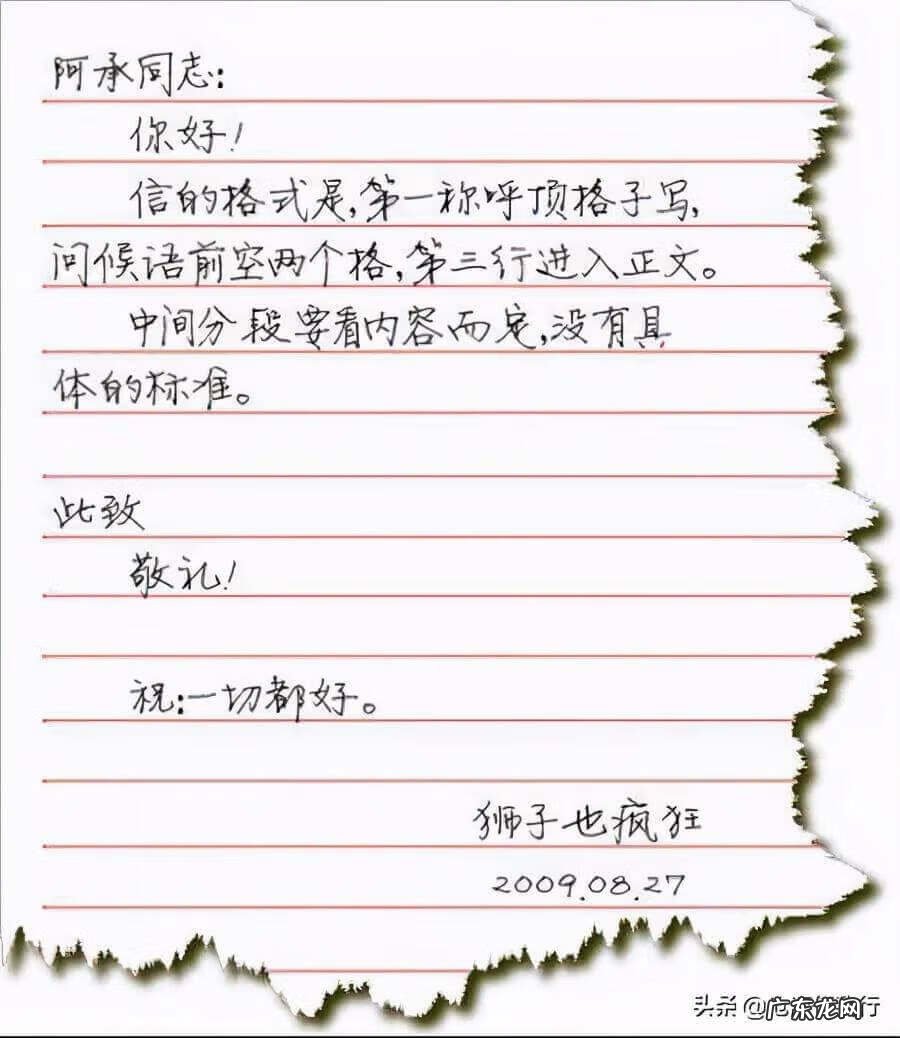 阿承同志:
你好!
信的格式是,第一称呼顶格子写,
问候语前空两个格,第三行进入正文。
中间分段要看内容而定,没有具
体的标准。
此致
敬礼!
祝:一切都好。
狮子也疯狂
2009.08.27
头条 @广东龙网行